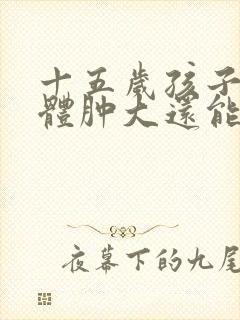 十五歲孩子
體肿大還能
夜幕下的九尾